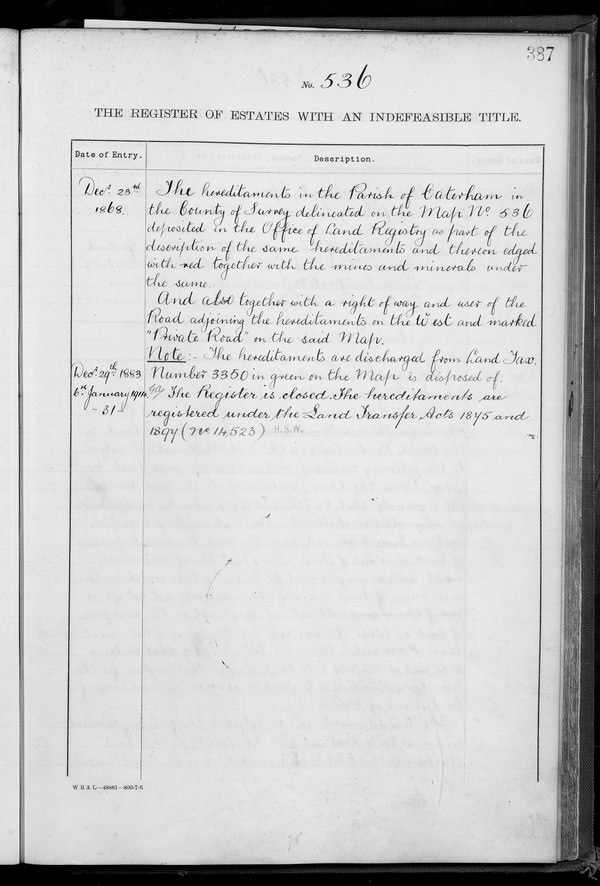 387
No. 536
THE REGISTER OF ESTATES WITH AN INDEFEASIBLE TITLE.
Date of Entry.
Description.
Decr. 23rd
1868.
The hereditaments in the Parish of Caterham in
the County of Surrey delineated on the Map No. 536
deposited in the Office of Land Registry as part of the
description of the same hereditaments and thereon edged
with red together with the mines and minerals under
the same.
And also together with a right of way and user of the
Road adjoining the hereditaments on the West and marked
"Private Road" on the said Map.
Note:- The hereditaments are discharged from Land Tax.
Decr. 29th 1883
Number 3350 in green on the Map is disposed of.
6th January 1914
The Register is closed. The hereditaments are
- 31 -
registered under the Land Transfer Acts 1875 and
1897 (No 14523) H.S.W.
W H & L—48881—800-7-6